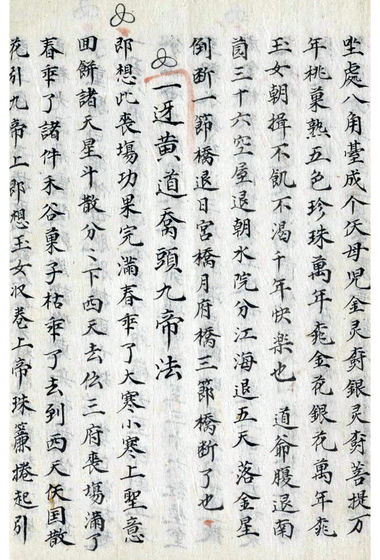 坐處八角䑓成个仸母児金灵𤔡銀灵𤔡菩提万
年桃菓熟五色珍珠萬年𠧞金花銀花萬年𠧞
玉女朝揖不飢不渴千年快楽也 道爺腹退南
菌三十六空屋退朝水院分江海退五天 落金星
倒断一節橋退日宮橋月府橋三節橋断了也
一迓黄道喬頭九帝法
即想此喪塲功果完滿春乖了大寒小寒上聖意
田餅諸天星斗散分〻下西天去仫三府喪塲滿了
春乖了諸件禾谷菓子枯乖了去到西天仸囯散
花引九帝上即想玉女収卷上帝珠簾捲起引